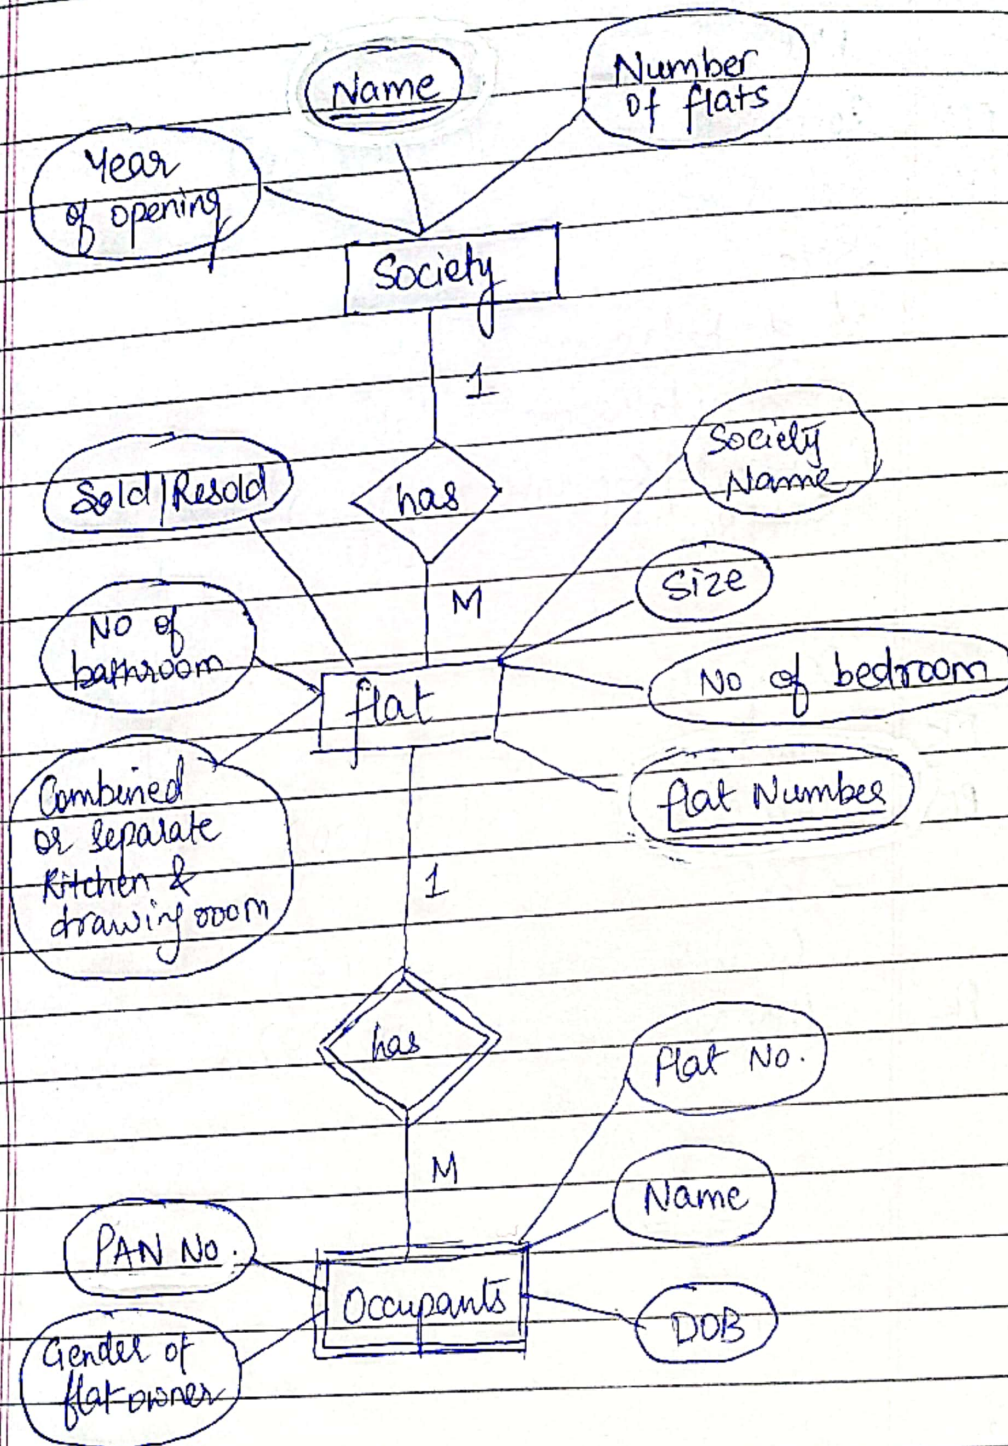 Name
Number
of flats
Year
of opening
Society
1
Sold/Resold
has
Society
Name
Size
M
No of
bathroom
flat
No of bedroom
flat Number
Combined
or separate
Kitchen &
drawing room
1
has
Flat No.
M
Name
PAN No.
Occupants
DOB
Gender of
flat owner